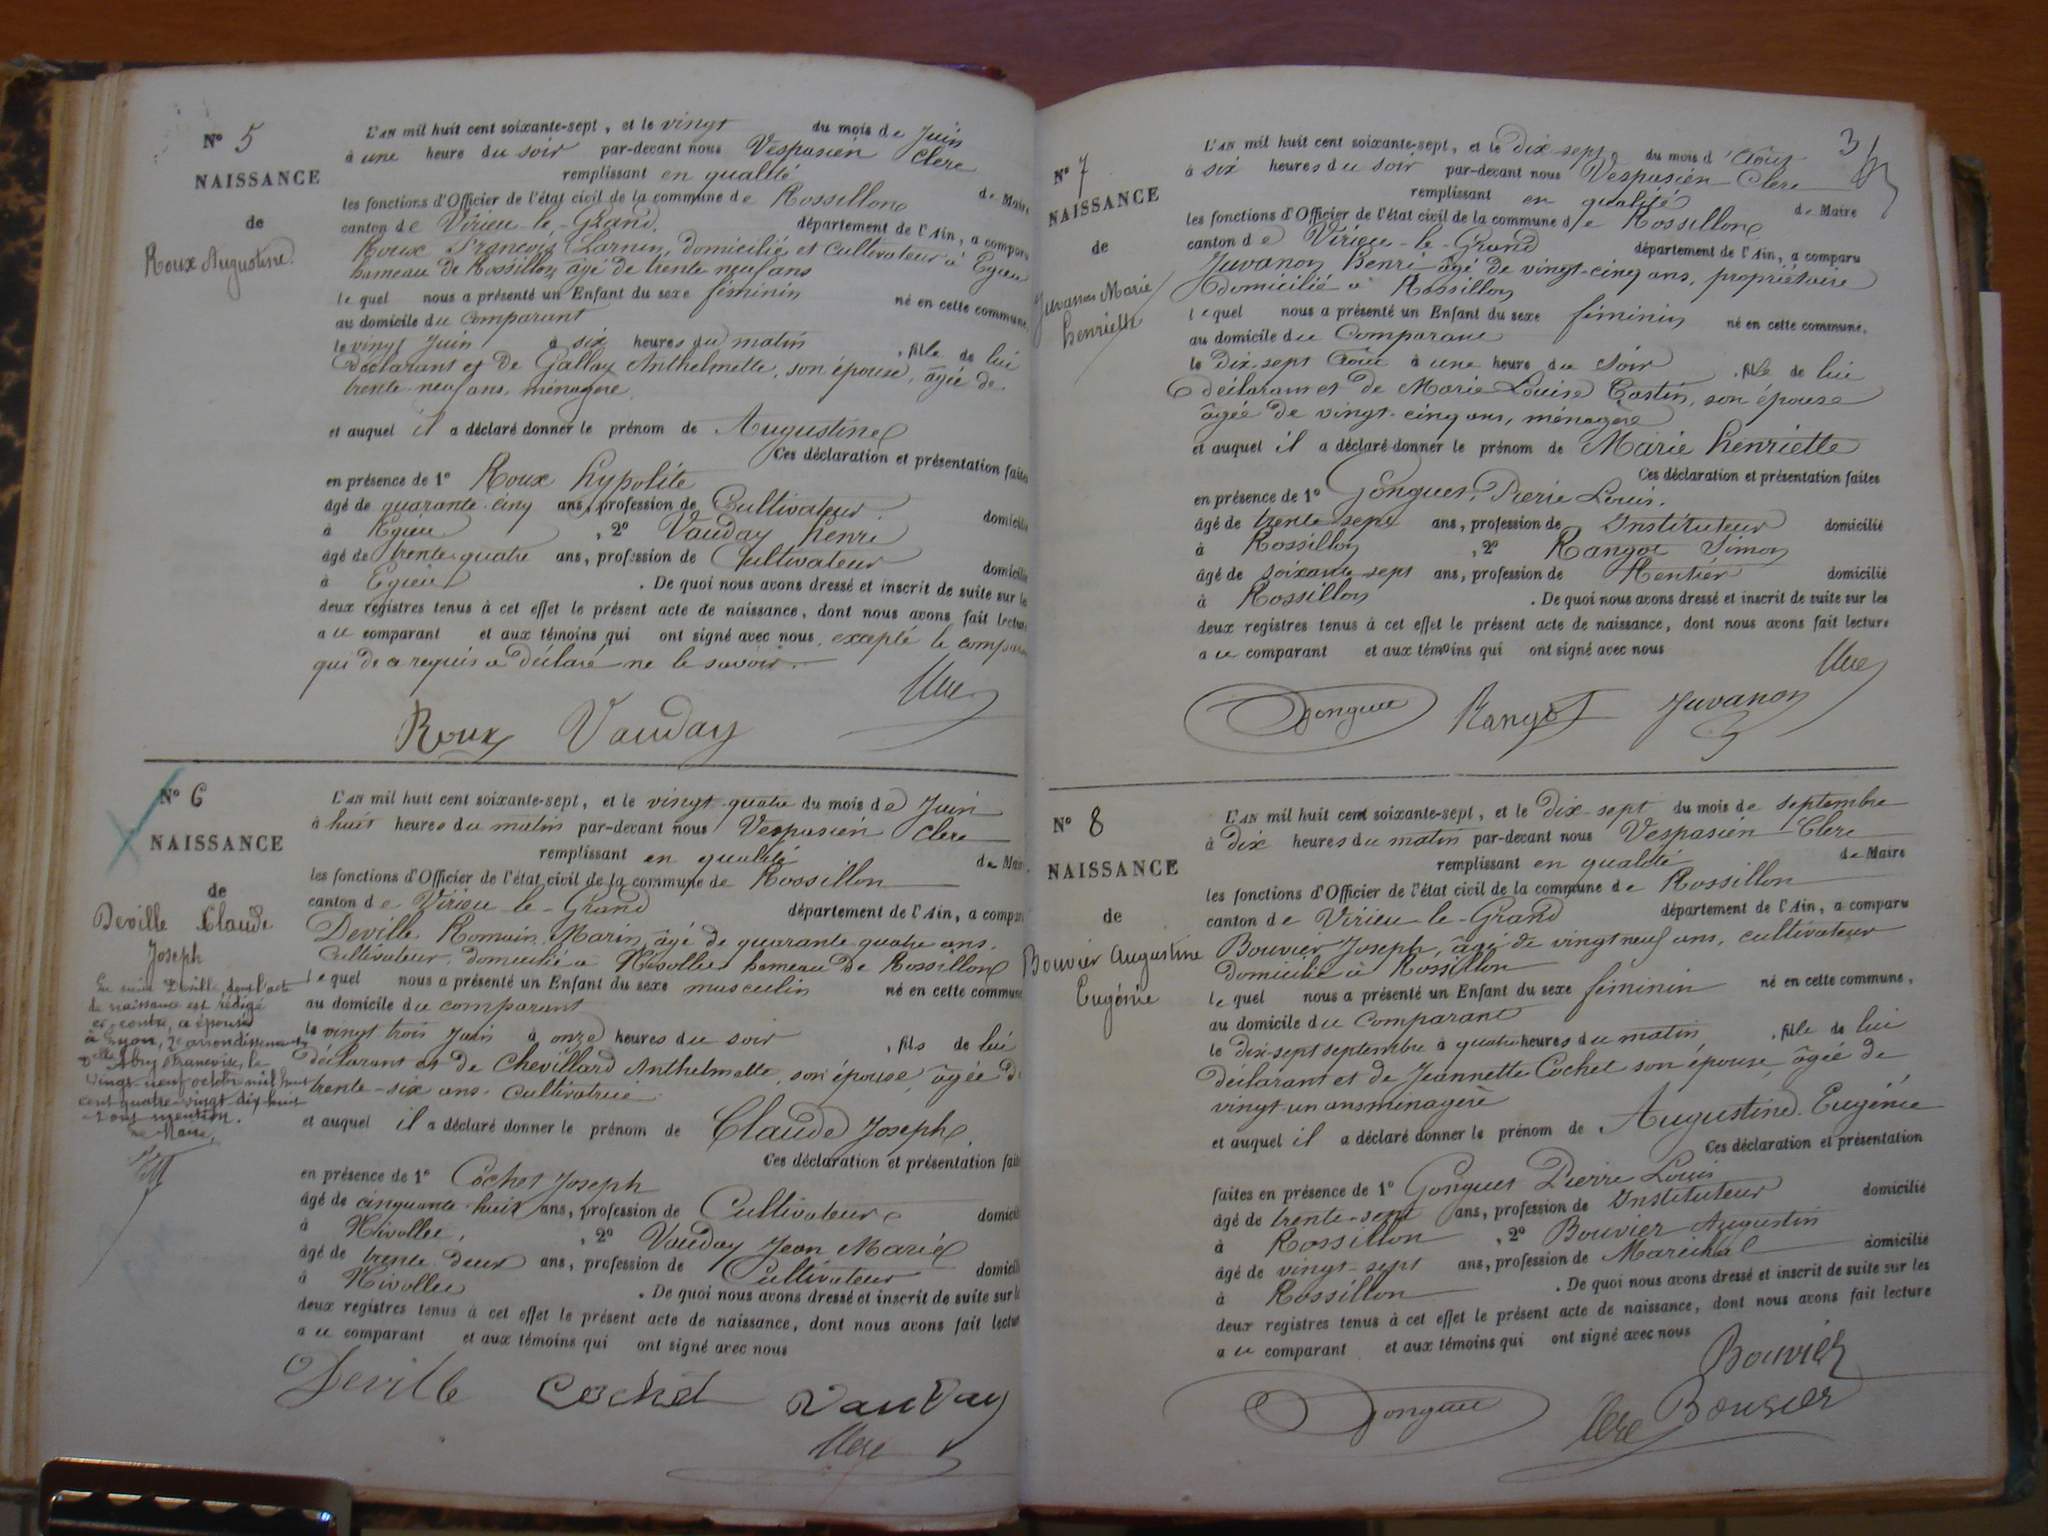 N° 5
NAISSANCE
de
Roux Augustine
L'AN mil huit cent soixante-sept, et le vingt du mois de Juin
à une heure du soir par-devant nous Vespasien Clere
remplissant en qualité de Maire
les fonctions d'Officier de l'état civil de la commune de Rossillon
canton de Virieu-le-Grand département de l'Ain, a comparu
Roux François Larnin, domicilié et cultivateur à Egieu
hameau de Rossillon âgé de trente neuf ans
lequel nous a présenté un Enfant du sexe féminin né en cette commune,
au domicile du comparant
le vingt Juin à six heures du matin, fille de lui
déclarant et de Gallay Anthelmette, son épouse, âgée de
trente neuf ans, ménagère.
et auquel il a déclaré donner le prénom de Augustine
Ces déclaration et présentation faites
en présence de 1° Roux hypolite
âgé de quarante-cinq ans, profession de Cultivateur domicilié
à Egieu, 2° Vauday henri
âgé de trente-quatre ans, profession de Cultivateur domicilié
à Egieu. De quoi nous avons dressé et inscrit de suite sur les
deux registres tenus à cet effet le présent acte de naissance, dont nous avons fait lecture
au comparant et aux témoins qui ont signé avec nous, excepté le comparant
qui de ce requis a déclaré ne le savoir.
Clere
Roux Vauday
N° 6
NAISSANCE
de
Deville Claude
Joseph
Le sieur Deville, dont l'acte
de naissance est rédigé
ci-contre, a épousé
à Lyon, 2e arrondissement
Dlle Abry Francoise, le
vingt-neuf octobre mil huit
cent quatre-vingt dix-huit
dont mention.
Le Maire,
L'AN mil huit cent soixante-sept, et le vingt-quatre du mois de Juin
à huit heures du matin par-devant nous Vespasien Clere
remplissant en qualité de Maire
les fonctions d'Officier de l'état civil de la commune de Rossillon
canton de Virieu-le-Grand département de l'Ain, a comparu
Deville Romain Marin âgé de quarante-quatre ans.
Cultivateur, domicilié à Nivollet hameau de Rossillon
lequel nous a présenté un Enfant du sexe masculin né en cette commune
au domicile du comparant
le vingt trois Juin à onze heures du soir, fils de lui
déclarant et de Chevillard Anthelmette, son épouse, âgée de
trente-six ans. Cultivatrice
et auquel il a déclaré donner le prénom de Claude Joseph.
Ces déclaration et présentation faites
en présence de 1° Cochet Joseph
âgé de cinquante-huit ans, profession de Cultivateur domicilié
à Nivollet, 2° Vauday Jean Marie
âgé de trente deux ans, profession de Cultivateur domicilié
à Nivollet. De quoi nous avons dressé et inscrit de suite sur les
deux registres tenus à cet effet le présent acte de naissance, dont nous avons fait lecture
au comparant et aux témoins qui ont signé avec nous
Deville Cochet Vauday
Clere
3
N° 7
NAISSANCE
de
Juvanon Marie
henriette
L'AN mil huit cent soixante-sept, et le Dix-sept du mois d'Août
à six heures du soir par-devant nous Vespasien Clere
remplissant en qualité de Maire
les fonctions d'Officier de l'état civil de la commune de Rossillon
canton de Virieu-le-Grand département de l'Ain, a comparu
Juvanon Henri âgé de vingt-cinq ans, propriétaire
domicilié à Rossillon
lequel nous a présenté un Enfant du sexe féminin né en cette commune,
au domicile du Comparant
le Dix-sept Août à une heure du soir, fille de lui
déclarant et de Marie Louise Costin, son épouse
âgée de vingt-cinq ans, ménagère
et auquel il a déclaré donner le prénom de Marie henriette
Ces déclaration et présentation faites
en présence de 1° Gonguet Pierre Louis.
âgé de trente-sept ans, profession de Instituteur domicilié
à Rossillon, 2° Rangot Simon
âgé de soixante-sept ans, profession de Rentier domicilié
à Rossillon. De quoi nous avons dressé et inscrit de suite sur les
deux registres tenus à cet effet le présent acte de naissance, dont nous avons fait lecture
au comparant et aux témoins qui ont signé avec nous
Clere
Gonguet Rangot Juvanon
N° 8
NAISSANCE
de
Bouvier Augustine
Eugénie
L'AN mil huit cent soixante-sept, et le Dix-sept du mois de septembre
à Dix heures du matin par-devant nous Vespasien Clere
remplissant en qualité de Maire
les fonctions d'Officier de l'état civil de la commune de Rossillon
canton de Virieu-le-Grand département de l'Ain, a comparu
Bouvier Joseph, âgé de vingt neuf ans, cultivateur
domicilié à Rossillon
lequel nous a présenté un Enfant du sexe féminin né en cette commune,
au domicile du comparant
le dix-sept septembre à quatre heures du matin, fille de lui
déclarant et de Jeannette Cochet son épouse, âgée de
vingt-un ans ménagère
et auquel il a déclaré donner le prénom de Augustine Eugénie
Ces déclaration et présentation
faites en présence de 1° Gonguet Pierre Louis
âgé de trente-sept ans, profession de Instituteur domicilié
à Rossillon, 2° Bouvier Augustin
âgé de vingt-sept ans, profession de Maréchal domicilié
à Rossillon. De quoi nous avons dressé et inscrit de suite sur les
deux registres tenus à cet effet le présent acte de naissance, dont nous avons fait lecture
au comparant et aux témoins qui ont signé avec nous
Bouvier
Gonguet Clere Bouvier